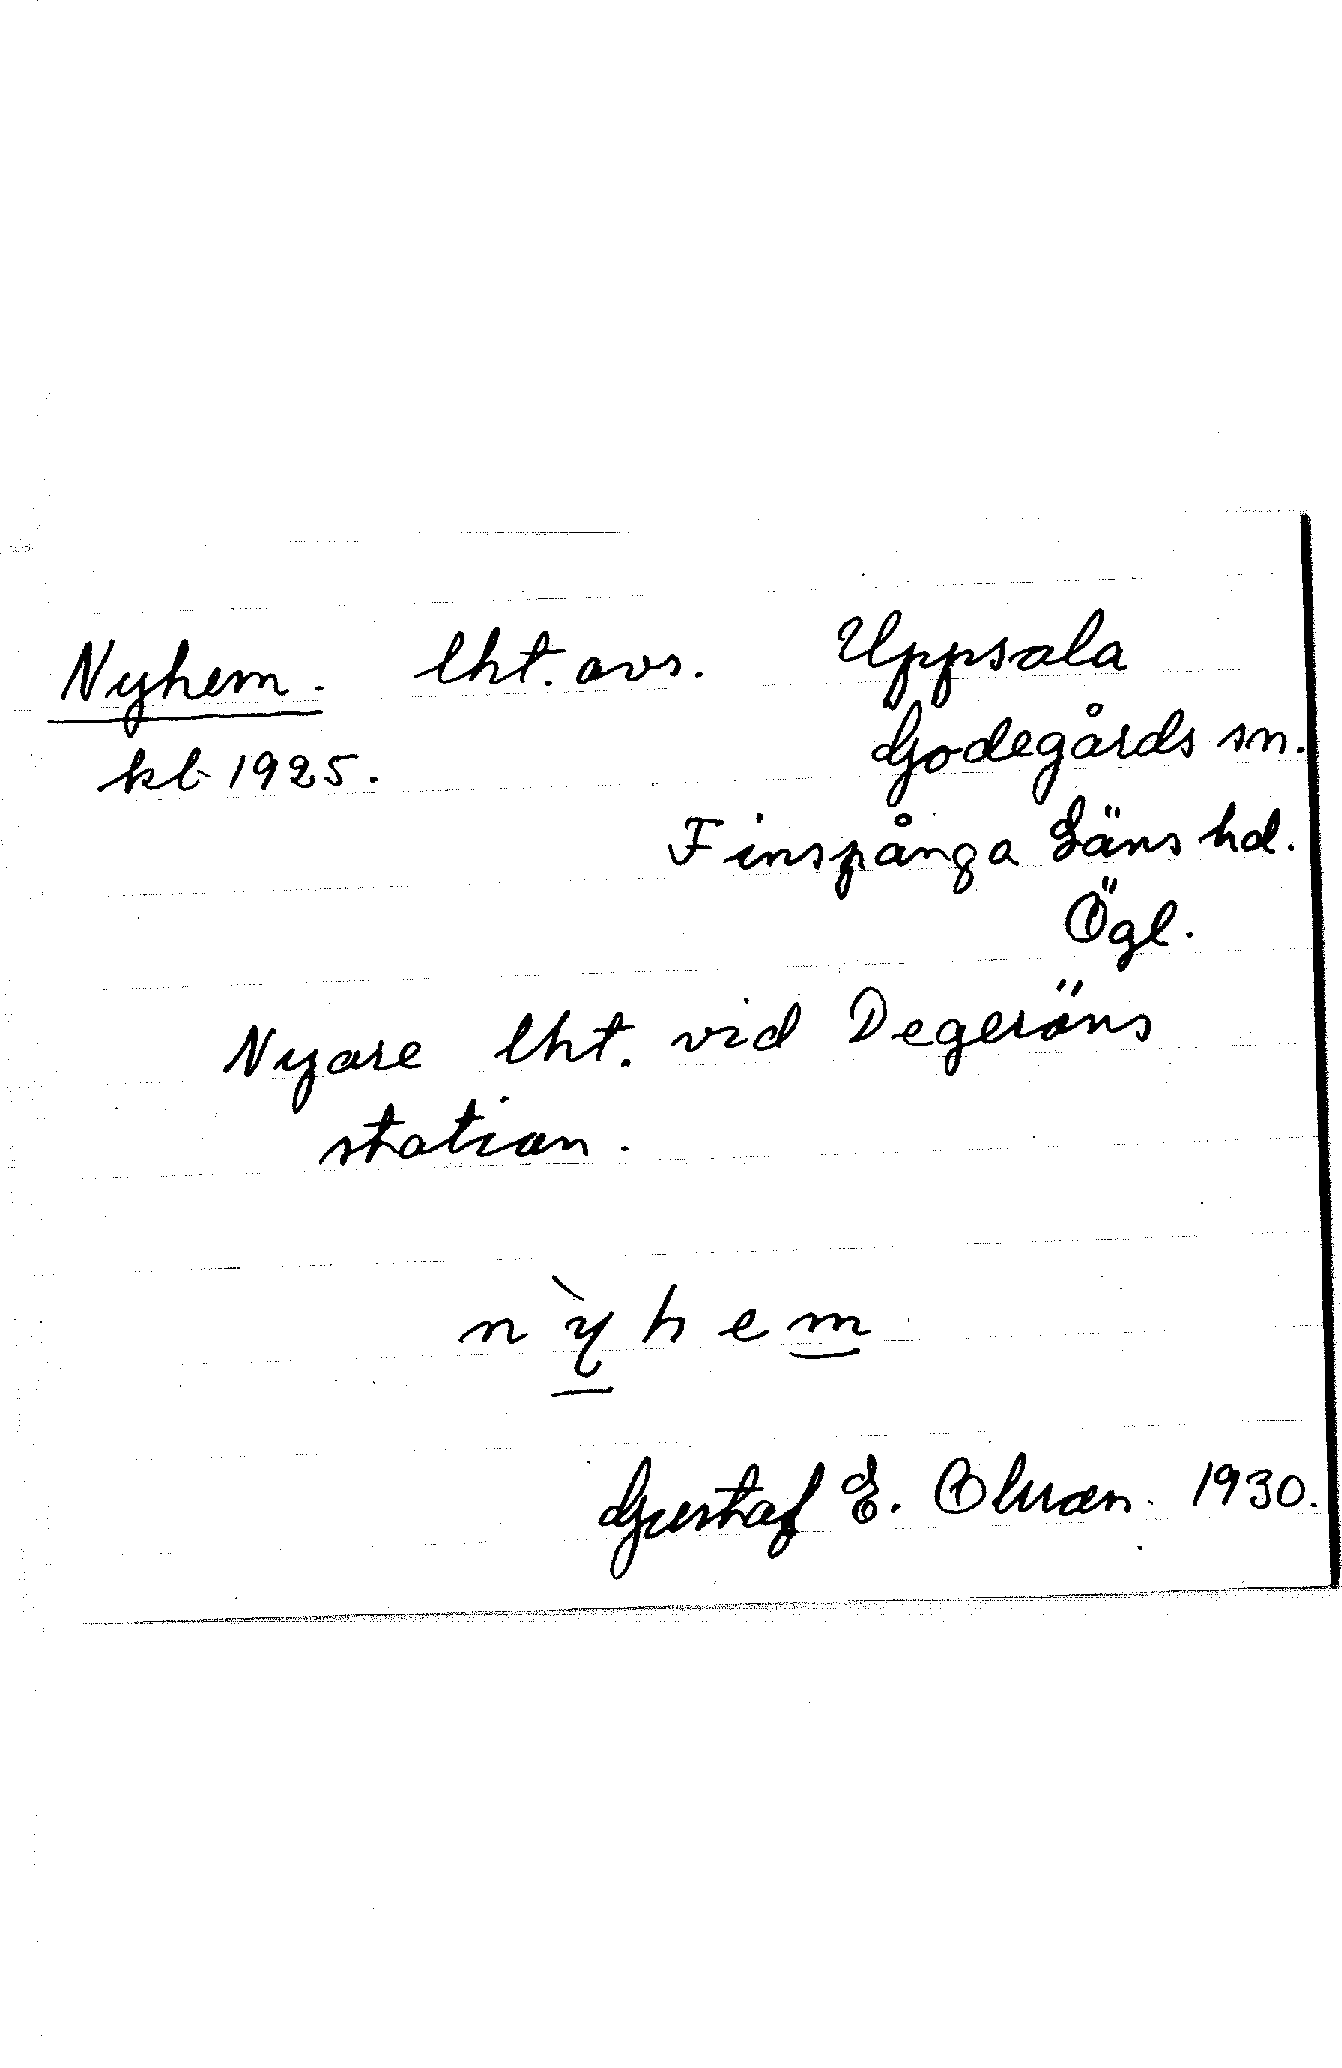 Nyhem. lht. avs. Uppsala
kb 1925. Godegårds sn.
Finspånga Läns hd.
Ögl.
Nyare lht. vid Degeröns
station.
nỳhem
Gustaf E. 1930.